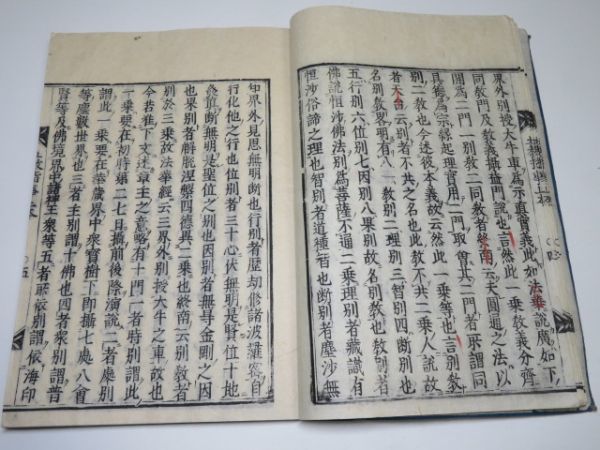 界外別授大牛車爲示眞實義此如法乘說魔如下
同敎門及敎義攝益門說也言然此一乘敎義分齊
開爲二門一別敎二同敎者終南云大圓通之法以
具德爲宗緣起理實用二門取會其二門者所謂同
別二敎也今述彼本義故云然此一乘等也言別敎
者天台云別者不共之名也此敎不共二乘人說故
名別敎敎畧明有八一敎別二理別三智別四斷別
五行別六位別七因別八果別故名別敎也敎別者
佛說恒沙佛法別爲菩薩不通二乘理別者藏識有
恒沙俗諦之理也智別者道種智也斷別者塵沙無
知界外見思無明斷也行別者歷劫修諸波羅蜜自
行化他之行也位別者三十心伏無明是賢位十地
發位斷無明是聖位之別也因別者無㝵金剛之因
也果別者解脫涅槃四德異二乘也終南云別敎者
別於三乘故法華經云三界外別授大牛之車故也
今若推下文述章主之意略有十門一者時別謂此
一乘要在初時第二七日攝前後際演說二者處別
謂此一乘要在華藏界中衆寶樹下卽攝七處八會
等塵數世界也三者主別謂十佛也四者衆別謂普
賢等及佛境界中諸神王衆等五者所依別謂依海印